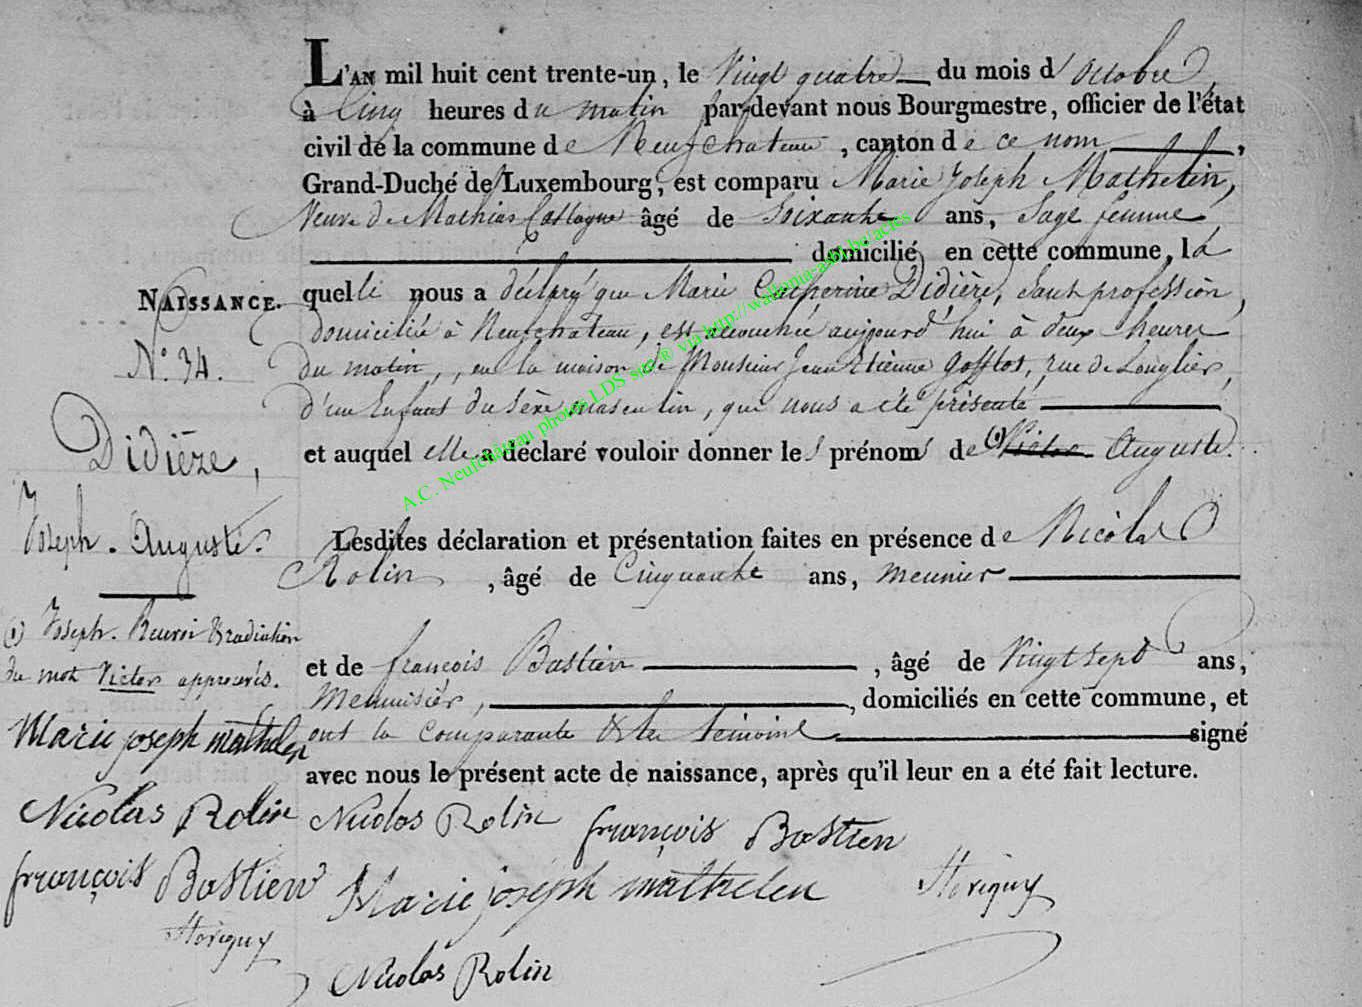 L'AN mil huit cent trente-un, le Vingt quatre du mois d'Octobre
à Cinq heures du matin par-devant nous Bourgmestre, officier de l'état
civil de la commune de Neufchateau, canton de ce nom,
Grand-Duché de Luxembourg, est comparu Marie Joseph Mathelin,
Veuve de Mathias âgé de Soixante ans, Sage femme
domicilié en cette commune, la
NAISSANCE.
quelle nous a déclaré que Marie Catherine Didière, sans profession,
domiciliée à Neufchateau, est accouchée aujourd'hui à deux heures
N.° 34.
du matin, en la maison de Monsieur Jean Etienne Gofflot, rue de Longlier,
d'un Enfant du sèxe masculin, qui nous a été présenté
Didièze,
et auquel elle a déclaré vouloir donner les prénoms de (1) Victor Auguste.
Joseph. Auguste.
Lesdites déclaration et présentation faites en présence de Nicolas
Rolin, âgé de Cinquante ans, meunier
(1) Joseph. Renvoi & radiation
du mot Victor approuvés.
et de françois Bastien, âgé de Vingt sept ans,
Menuisier, domiciliés en cette commune, et
Marie joseph mathelen
ont la Comparante & les témoins signé
avec nous le présent acte de naissance, après qu'il leur en a été fait lecture.
Nicolas Rolin
Nicolas Rolin
françois Bastien
françois Bastien
Marie joseph mathelen
Nicolas Rolin
A.C. Neufchâteau photos LDS sur ® via http://wallonia-asbl.be/actes